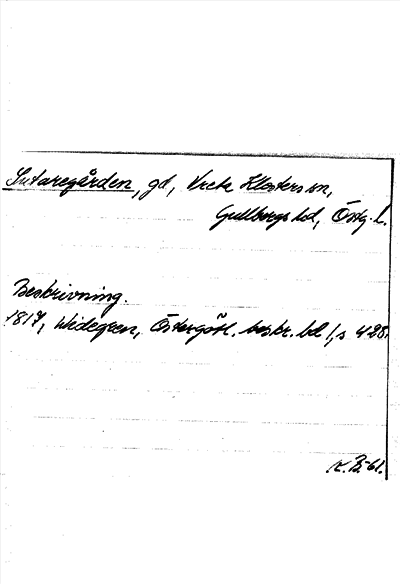 Sutaregården, gd, Vreta Klosters sn,
Gullbergs hd, Östg. l.
Beskrivning.
1817, Widegren, Östergötl. beskr. bd 1, s 428.
K. B-61.